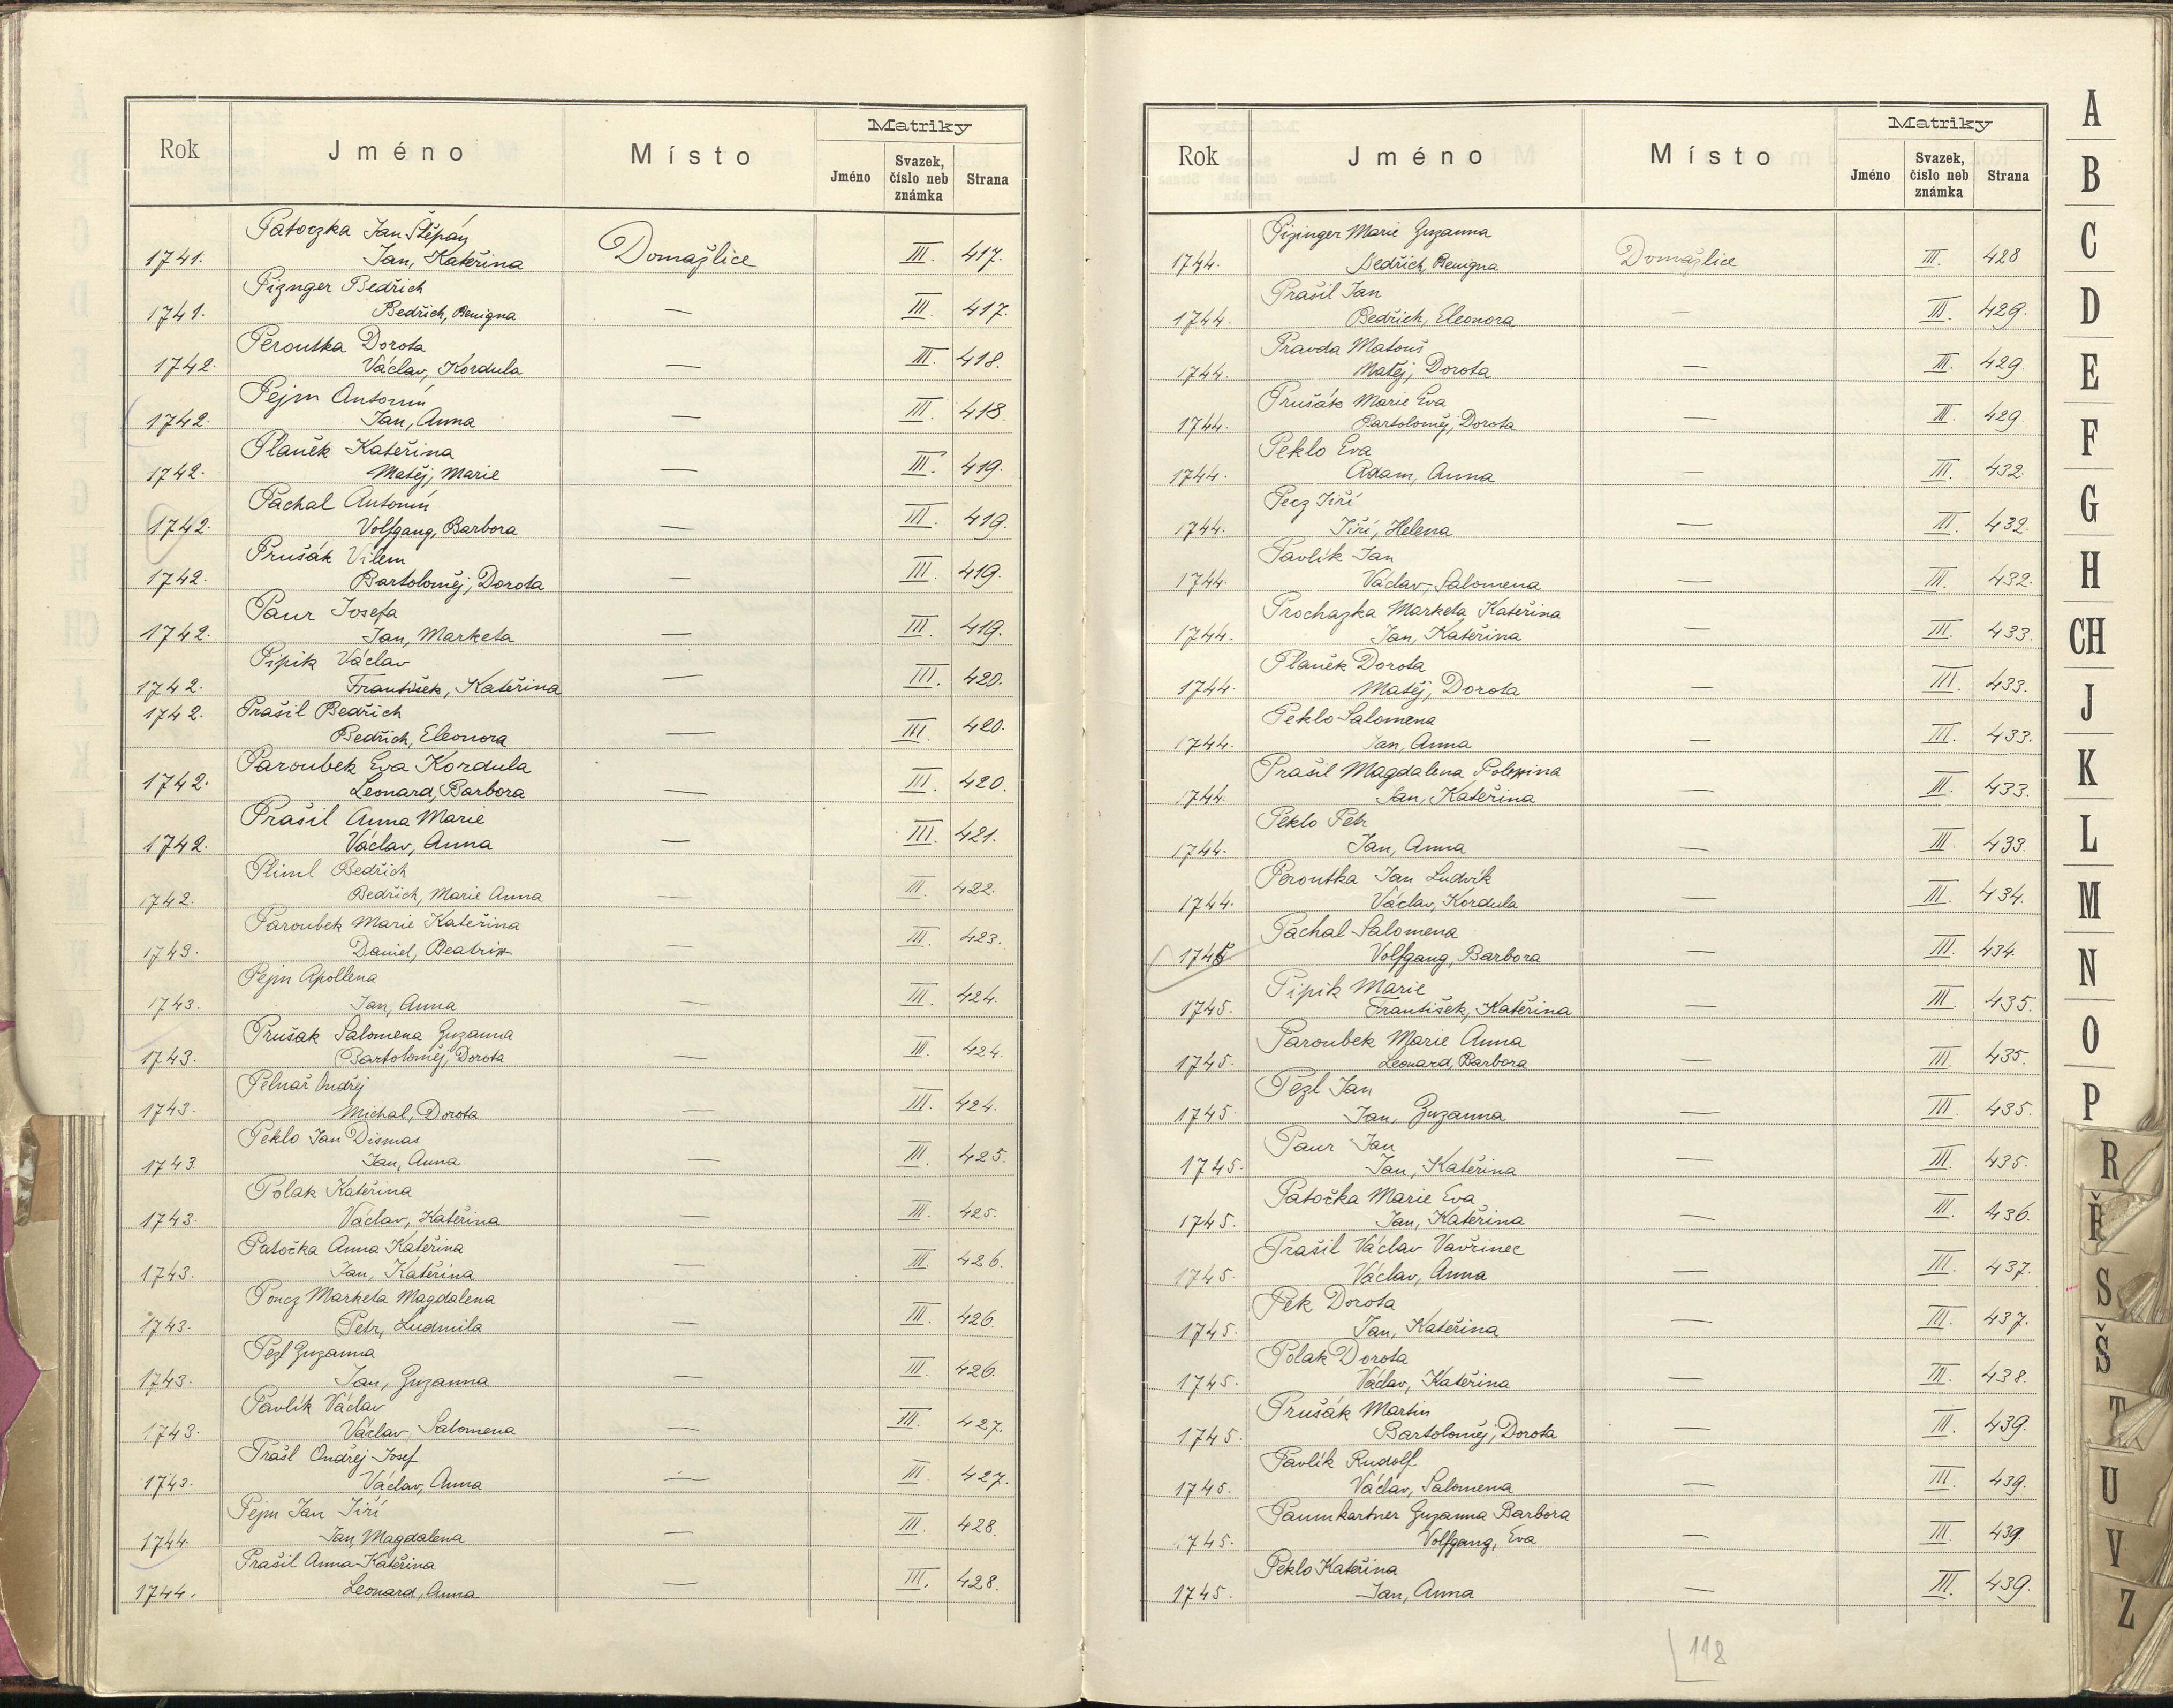 Matriky
Rok Jméno Místo Jméno Svazek, číslo neb známka Strana
Patoczka Jan Štěpán
1741. Jan, Kateřina Domažlice III. 417.
Piznger Bedřich
1741. Bedřich, Benigna — III. 417.
Peroutka Dorota
1742. Václav, Kordula — III. 418.
Pejm Antonín
1742. Jan, Anna — III. 418.
Planěk Kateřina
1742. Matěj, Marie — III. 419.
Pachal Antonín
1742. Volfgang, Barbora — III. 419.
Prušák Vilem
1742. Bartoloměj, Dorota — III. 419.
Paur Josefa
1742. Jan, Marketa — III. 419.
Pipik Václav
1742. František, Kateřina — III. 420.
1742. Prašil Bedřich
Bedřich, Eleonora — III. 420.
Paroubek Eva Kordula
1742. Leonard, Barbora — III. 420.
Prašil Anna Marie
1742. Václav, Anna — III. 421.
Pliml Bedřich
1742. Bedřich, Marie Anna — III. 422.
Paroubek Marie Kateřina
1743. Daniel, Beatrix — III. 423.
Pejm Apollena
1743. Jan, Anna — III. 424.
Prušak Salomena Zuzanna
1743. Bartoloměj, Dorota — III. 424.
Pelnař Ondřej
1743. Michal, Dorota — III. 424.
Peklo Jan Dismas
1743. Jan, Anna — III. 425.
Polak Kateřina
1743. Václav, Kateřina — III. 425.
Patočka Anna Kateřina
1743. Jan, Kateřina — III. 426.
Poncz Marketa Magdalena
1743. Petr, Ludmila — III. 426.
Pezl Zuzanna
1743. Jan, Zuzanna — III. 426.
Pavlík Václav
1743. Václav, Salomena — III. 427.
Prašl Ondřej Josef
1743. Václav, Anna — III 427.
Pejm Jan Jiří
1744. Jan, Magdalena — III. 428.
Prašil Anna Kateřina
1744. Leonard, Anna — III. 428.
Matriky
Rok Jméno Místo Jméno Svazek, číslo neb známka Strana
Pizinger Marie Zuzanna
1744. Bedřich, Benigna Domažlice III. 428
Prašil Jan
1744. Bedřich, Eleonora — III. 429.
Pravda Matouš
1744. Matěj, Dorota — III. 429.
Prušák Marie Eva
1744. Bartoloměj, Dorota — III. 429
Peklo Eva
1744. Adam, Anna — III. 432.
Pecz Jiří
1744. Jiří, Helena — III. 432.
Pavlík Jan
1744. Václav, Salomena — III. 432.
Prochazka Marketa Kateřina
1744. Jan, Kateřina — III. 433.
Planěk Dorota
1744. Matěj, Dorota — III. 433.
Peklo Salomena
1744. Jan, Anna — III. 433.
Prašil Magdalena Polexina
1744. Jan, Kateřina — III. 433.
Peklo Petr
1744. Jan, Anna — III. 433.
Peroutka Jan Ludvík
1744. Václav, Kordula — III. 434.
Pachal Salomena
1745 Volfgang, Barbora — III. 434.
Pipik Marie
1745. František, Kateřina — III. 435.
Paroubek Marie Anna
1745. Leonard, Barbora — III. 435.
Pezl Jan
1745. Jan, Zuzanna — III. 435.
Paur Jan
1745. Jan, Kateřina — III. 435.
Patočka Marie Eva
1745. Jan, Kateřina — III. 436.
Prašil Václav Vavřinec
1745. Václav, Anna — III. 437.
Pek Dorota
1745. Jan, Kateřina — III. 437.
Polak Dorota
1745. Václav, Kateřina — III. 438.
Prušák Martin
1745. Bartoloměj, Dorota — III. 439.
Pavlík Rudolf
1745. Václav, Salomena — III. 439.
Paumkartner Zuzanna Barbora
1745. Volfgang, Eva — III. 439.
Peklo Kateřina
1745. Jan, Anna — III. 439.
118
A
B
C
D
E
F
G
H
CH
J
K
L
M
N
O
P
R
Ř
S
Š
T
U
V
Z